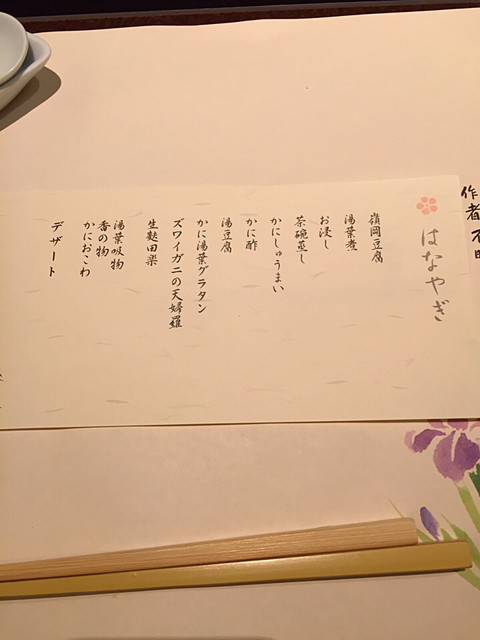 作者不明
はなやぎ
嶺岡豆腐
湯葉煮
お浸し
茶碗蒸し
かにしゅうまい
かに酢
湯豆腐
かに湯葉グラタン
ズワイガニの天婦羅
生麩田楽
湯葉吸物
香の物
かにおこわ
デザート